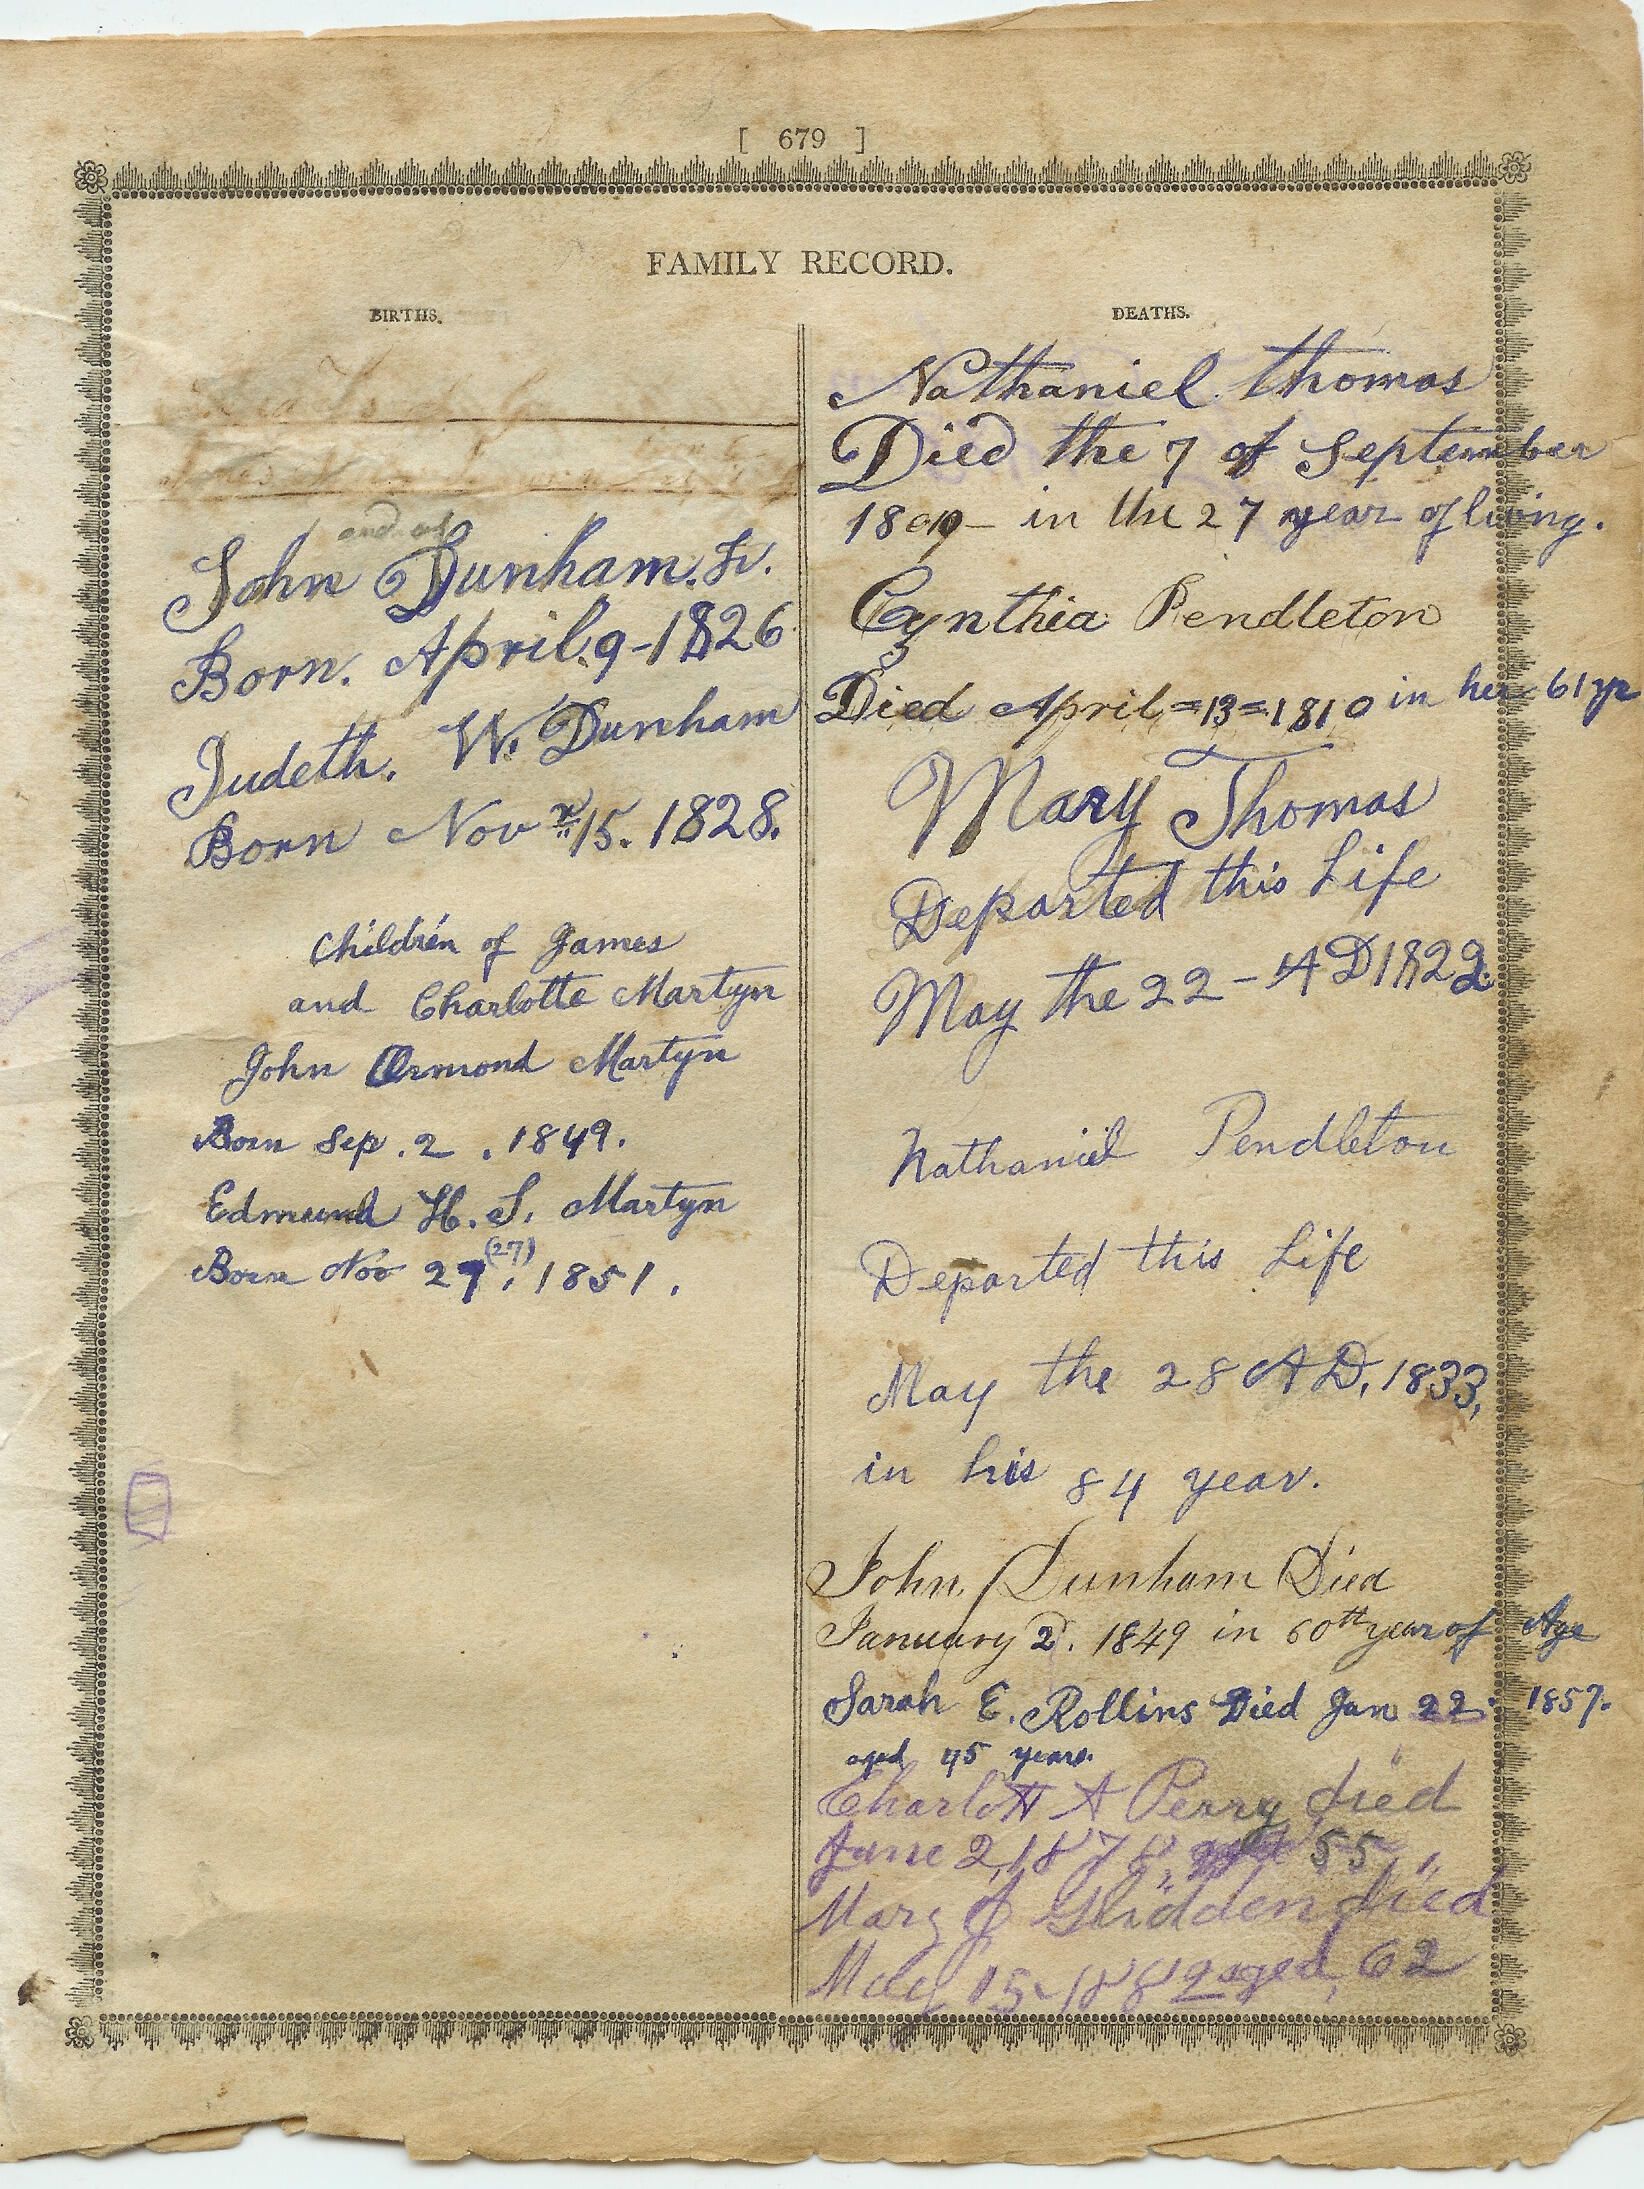 [ 679 ]
FAMILY RECORD.
BIRTHS.
John Dunham. Jr.
Born. April. 9-1826
Judeth. W. Dunham
Born Nov r 15. 1828.
Children of James
and Charlotte Martyn
John Ormond Martyn
Born Sep. 2. 1849.
Edmund H. S. Martyn
Born Nov 27, (27) 1851.
DEATHS.
Nathaniel Thomas
Died the 7 of September
in the 27 year of living.
Cynthia Pendleton
Died April =13= 1810 in her 61 yr
Mary Thomas
Departed this Life
May the 22 - AD 1822.
Nathaniel Pendleton
Departed this Life
May the 28 AD, 1833,
in his 84 year.
John Dunham Died
January 2. 1849 in 60th year of Age
Sarah E. Rollins Died Jan 22. 1857.
aged 45 years.
Charlott A Perry died
June 2, 1878, 55
Mary J Glidden died
May 15-1882 aged, 62